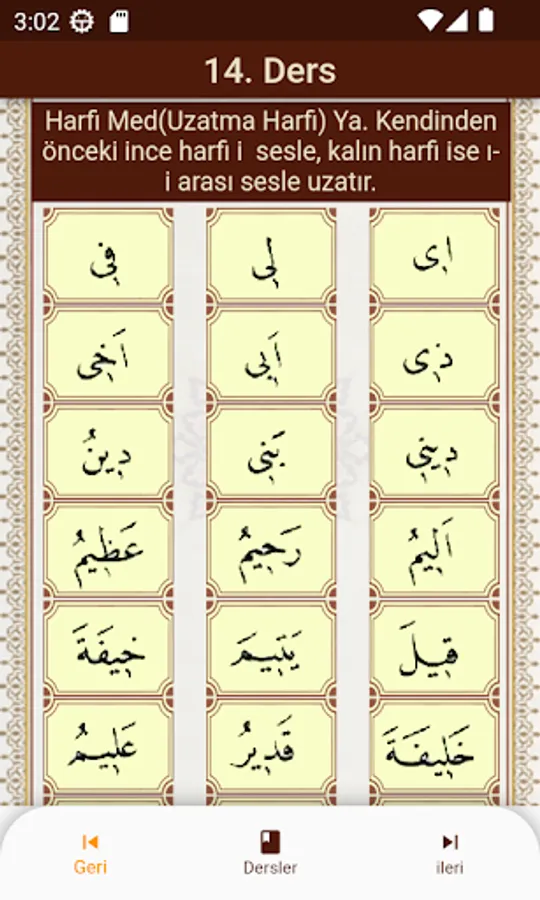 3:02
14. Ders
Harfi Med(Uzatma Harfi) Ya. Kendinden
önceki ince harfi i sesle, kalın harfi ise ı-
i arası sesle uzatır.
اٖى لٖى فٖى
ذٖى اَبٖى اَخٖى
دٖينٖى بَنٖى دٖينُ
اَلٖيمُ رَحٖيمُ عَظٖيمُ
قٖيلَ يَتٖيمَ خٖيفَةَ
خَلٖيفَةَ قَدٖيرُ عَلٖيمُ
Geri Dersler ileri